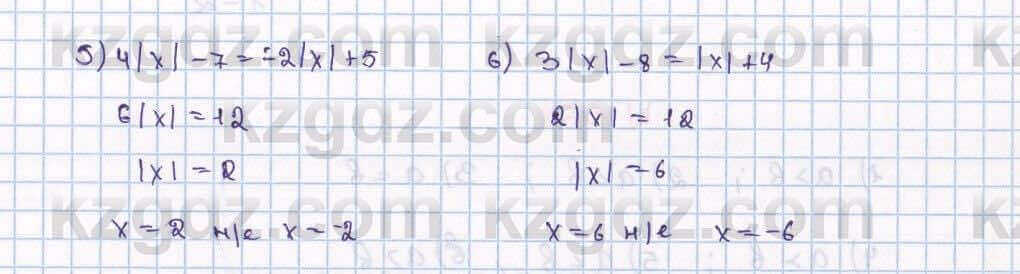 5) 4|x| - 7 = -2|x| + 5
6|x| = 12
|x| = 2
x = 2 н/е x = -2
6) 3|x| - 8 = |x| + 4
2|x| = 12
|x| = 6
x = 6 н/е x = -6
kzgdz.com
kzgdz.com
kzgdz.com
kzgdz.com